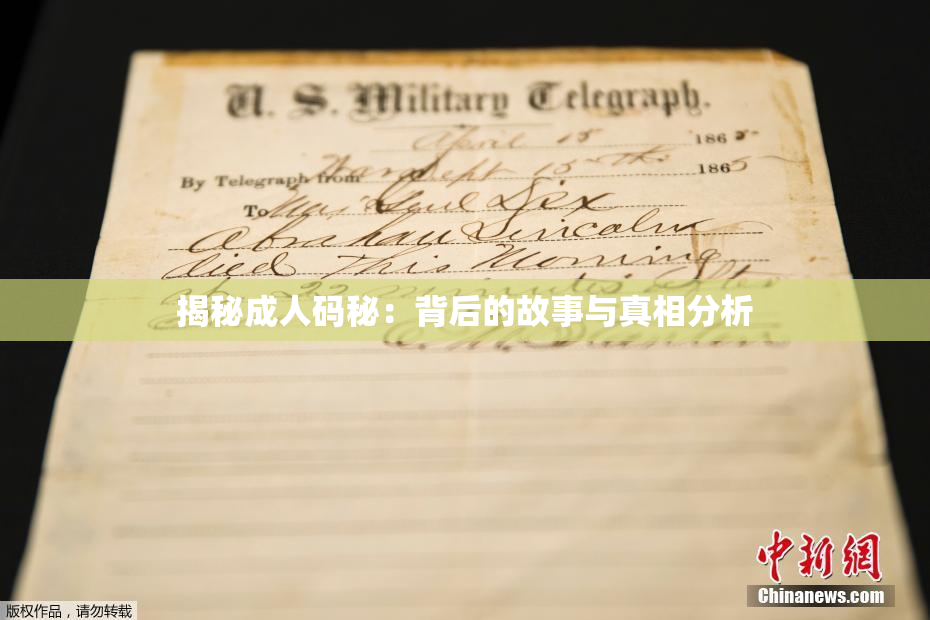 U. S. Military Telegraph.
April 15 1865.
By Telegraph from War Dept 15th 1865
To Maj Genl Dix
Abraham Lincoln
died This Morning
22 minutes after
揭秘成人码秘：背后的故事与真相分析
中新網
Chinanews.com
版权作品，请勿转载